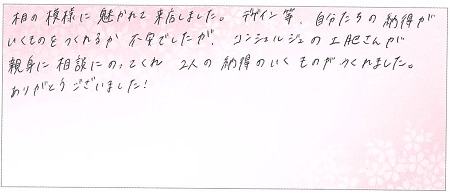 相の模様に魅かれて来店しました。デザイン等、自分たちの納得が
いくものをつくれるか不安でしたが、コンシェルジュの土肥さんが
親身に相談にのってくれ 2人の納得のいくものがつくれました。
ありがとうございました!